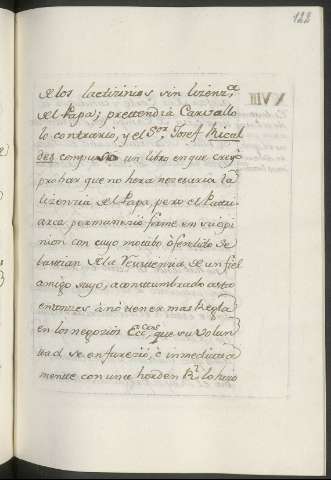 122
XVIII
de los lacticinios sin lizenz.ª
del Papa; prettendia Carvallo
lo contrario, y el S.or Josef Rical
des compuso un libro en que creyó
probar que no hera necesaria la
lizenzia del Papa, pero el Patri
arca permanezio firme en su opi
nion con cuyo motibo ofendido Se
bastian de la
de un fiel
amigo suyo, aconstumbrado asta
entonzes â nò tener mas Regla
en los negozios
que su volun
tad se enfurezió, è inmediata
mente con una horden R.l lo hizo